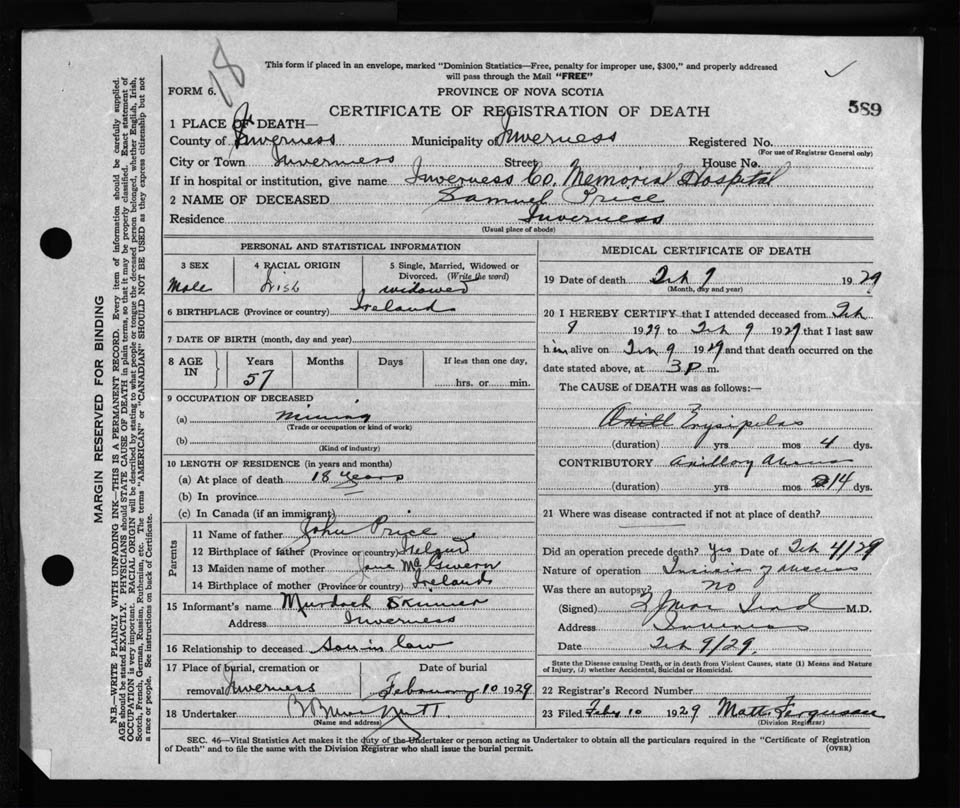 18
This form if placed in an envelope, marked "Dominion Statistics—Free, penalty for improper use, $300," and properly addressed
will pass through the Mail "FREE"
FORM 6.
PROVINCE OF NOVA SCOTIA
CERTIFICATE OF REGISTRATION OF DEATH
589
1 PLACE OF DEATH—
County of Inverness Municipality of Inverness Registered No.
(For use of Registrar General only)
City or Town Inverness Street House No.
If in hospital or institution, give name Inverness Co. Memorial Hospital
2 NAME OF DECEASED Samuel Price
Residence Inverness
(Usual place of abode)
PERSONAL AND STATISTICAL INFORMATION
3 SEX 4 RACIAL ORIGIN 5 Single, Married, Widowed or
Divorced. (Write the word)
Male Irish widowed
6 BIRTHPLACE (Province or country) Ireland
7 DATE OF BIRTH (month, day and year)
8 AGE IN Years Months Days If less than one day,
57 hrs. or min.
9 OCCUPATION OF DECEASED
(a) mining
(Trade or occupation or kind of work)
(b)
(Kind of industry)
10 LENGTH OF RESIDENCE (in years and months)
(a) At place of death 18 years
(b) In province
(c) In Canada (if an immigrant)
Parents
11 Name of father John Price
12 Birthplace of father (Province or country) Ireland
13 Maiden name of mother Jane McGivern
14 Birthplace of mother (Province or country) Ireland
15 Informant's name Murdoch Skinner
Address Inverness
16 Relationship to deceased Son in law
17 Place of burial, cremation or Date of burial
removal Inverness February 10 1929
18 Undertaker
(Name and address)
MEDICAL CERTIFICATE OF DEATH
19 Date of death Feb 9 1929
(Month, day and year)
20 I HEREBY CERTIFY that I attended deceased from Feb
8 1929 to Feb 9 1929 that I last saw
him alive on Feb 9 1929 and that death occurred on the
date stated above, at 3 P m.
The CAUSE of DEATH was as follows:—
Erysipelas
(duration) yrs mos 4 dys.
CONTRIBUTORY Axillary Abscess
(duration) yrs mos 14 dys.
21 Where was disease contracted if not at place of death?
Did an operation precede death? Yes Date of Feb 4/29
Nature of operation Incision of Abscess
Was there an autopsy? No
(Signed) M.D.
Address Inverness
Date Feb 9/29.
State the Disease causing Death, or in death from Violent Causes, state (1) Means and Nature
of Injury, (2) whether Accidental, Suicidal or Homicidal.
22 Registrar's Record Number
23 Filed Feby 10 1929 Matt Ferguson
(Division Registrar)
SEC. 46—Vital Statistics Act makes it the duty of the Undertaker or person acting as Undertaker to obtain all the particulars required in the "Certificate of Registration
of Death" and to file the same with the Division Registrar who shall issue the burial permit.
(OVER)
MARGIN RESERVED FOR BINDING
N.B.—WRITE PLAINLY WITH UNFADING INK—THIS IS A PERMANENT RECORD. Every item of information should be carefully supplied.
AGE should be stated EXACTLY. PHYSICIANS should STATE CAUSE OF DEATH in plain terms, so that it may be properly classified. Exact statement of
OCCUPATION is very important. RACIAL ORIGIN will be described by stating to what people or tongue the deceased person belonged, whether English, Irish,
Scotch, French, German, Russian, Ruthenian, etc. The terms "AMERICAN" or "CANADIAN" SHOULD NOT BE USED as they express citizenship but not
a race or people. See instructions on back of Certificate.